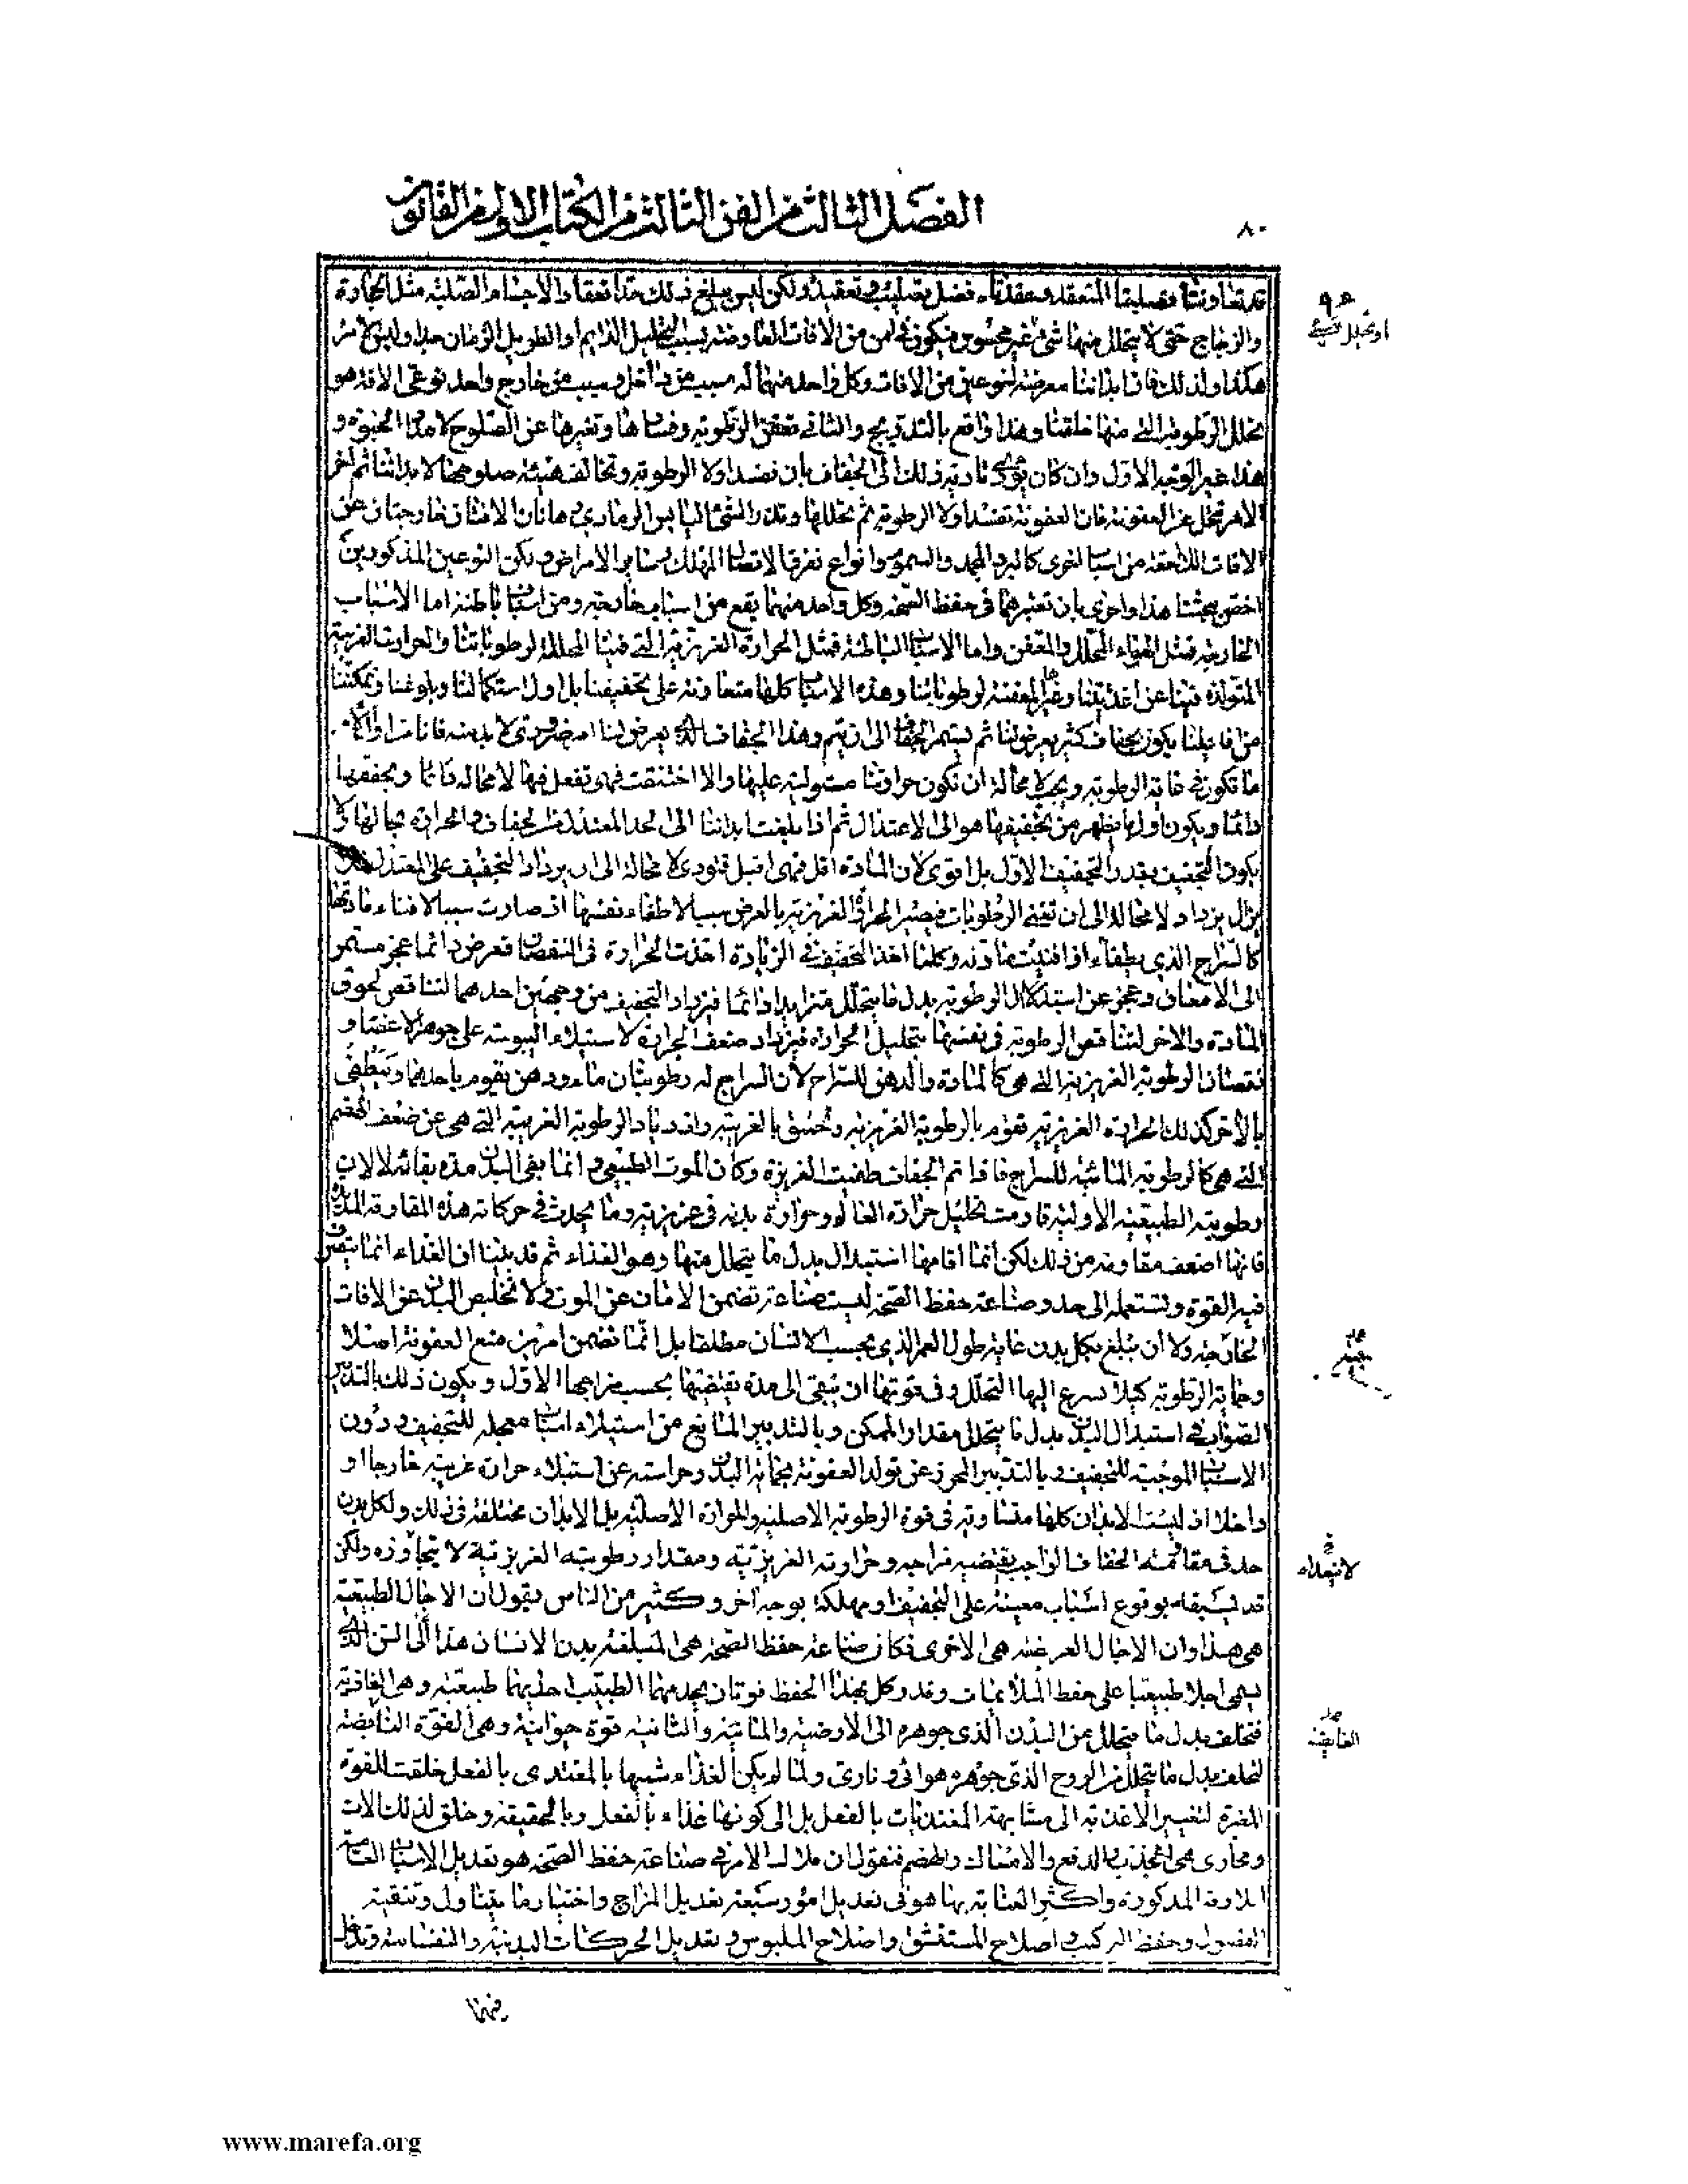 ٨٠
الفصل الثالث من الفن الثالث من الكتاب الاول من القانون
قد تعاونتا فصليتا المتعقد وعقدتاه فضل تصليب وتعقيد ولكن ليس يبلغ ذلك حد انعقاد الاجسام الصلبة مثل الحجارة
والزجاج حتى لا يتحلل منها شئ غير محسوس فيكون في امن من الافات العارضة بسبب التحليل الدايم او الطويل الزمان جدا وليس الامر
هكذا ولذلك فان ابداننا معرضة لنوعين من الافات وكل واحد منهما له سبب من داخل وسبب من خارج واحد نوعى الافة هو
تحلل الرطوبة التى منها خلقنا وهذا واقع بالتدريج والثانى تعفن الرطوبة وفسادها وتغيرها عن الصلوح لامداد الحيوة و
هذا غير الوجه الاول وان كان يؤدى تادية ذلك الى الجفاف بان تفسد اولا الرطوبة وتخالف هيئة صلوحها لابداننا ثم اخر
الامر تتحلل عن العفونة فان العفونة تفسد اولا الرطوبة ثم تحللها وتذر الشئ اليابس الرمادى وهاتان الافتان خارجتان عن
الافات اللاحقة من اسباب اخرى كالبرد المجمد والسموم وانواع تفرق الاتصال المهلك وساير الامراض ولكن النوعين المذكورين
اخص بحثنا هذا واحرى بان نعتبرهما فى حفظ الصحة وكل واحد منهما يقع من اسباب خارجة ومن اسباب باطنة اما الاسباب
الخارجة فمثل الهواء المحلل والمعفن واما الاسباب الباطنة فمثل الحرارة الغريزية التى فينا المحللة لرطوباتنا والحرارة الغريبة
المتولدة فينا عن اغذيتنا وغيرها المعفنة لرطوباتنا وهذه الاسباب كلها متعاونة على تجفيفنا بل اول استكمالنا وبلوغنا وتمكننا
من افاعيلنا يكون بجفاف كثير يعرض لنا ثم يستمر الجفاف الى ان يتم وهذا الجفاف الذى يعرض لنا امر ضرورى لا بد منه فانا من اول
ما نكون فى غاية الرطوبة ويجب لا محالة ان تكون حرارتنا مستولية عليها والا اختنقت فهى تفعل فيها لا محالة دائما ويجففها
دائما ويكون اول ما يظهر من تجفيفها هو الى الاعتدال ثم اذا بلغت ابداننا الى الحد المعتدل من الجفاف والحرارة بحالها لا
يكون التجفيف بقدر التجفيف الاول بل اقوى لان المادة اقل فهى اقبل فتودى لا محالة الى ان يزداد التجفيف على المعتدل فلا
يزال يزداد لا محالة الى ان تفنى الرطوبات فيصير الحرارة الغريزية بالعرض سببا لاطفاء نفسها اذ صارت سببا لافناء مادتها
كالسراج الذى يطفاء اذا افنيت مادته وكلما اخذ التجفيف فى الزيادة اخذت الحرارة فى النقصان فعرض دائما عجز مستمر
الى الامعان وعجز عن استبدال الرطوبة بدل ما يتحلل متزايدا دائما فيزداد التجفيف من وجهين احدهما لتناقص لحوق
المادة والاخر لتناقص الرطوبة فى نفسها بتحليل الحرارة فيزداد ضعف الحرارة لاستيلاء اليبوسة على جوهر الاعضاء و
نقصان الرطوبة الغريزية التى هى كالمادة والدهن للسراج لان السراج له رطوبتان ماء ودهن يقوم باحدهما وينطفى
بالاخر كذلك الحرارة الغريزية تقوم بالرطوبة الغريزية وتختنق بالغريبة وازدياد الرطوبة الغريبة التى هى عن ضعف الهضم
التى هى كالرطوبة المائية للسراج فاذا تم الجفاف طفئت الغريزة وكان الموت الطبيعى وانما بقى البدن مدة بقائه لا لان
رطوبته الطبيعية الاولية قاومت تحليل حرارة العالم وحرارة بدنه فى غريزته وما يحدث فى حركاته هذه المقاومة المديدة
فانها اضعف مقاومة من ذلك لكن انما اقامها استبدال بدل ما يتحلل منها وهو الغذاء ثم قد بينا ان الغذاء انما يتصرف
فيه القوة وتستعمله الى حد وصناعة حفظ الصحة ليست صناعة تضمن الامان عن الموت ولا تخليص البدن عن الافات
الخارجة ولا ان تبلغ بكل بدن غاية طول العمر الذى بحسب الانسان مطلقا بل انما تضمن امرين منع العفونة اصلا
وحماية الرطوبة كيلا يسرع اليها التحلل وفى قوتها ان تبقى الى مدة تقتضيها بحسب مزاجها الاول ويكون ذلك بالتدبير
الصواب فى استبدال البدن بدل ما يتحلل مقدار الممكن وبالتدبير المانع من استيلاء اسباب معجلة للتجفيف ودون
الاسباب الموجبة للتجفيف وبالتدبير المحرز عن تولد العفونة بحماية البدن وحراسته عن استيلاء حرارة غريبة خارجا او
داخلا اذ ليست الابدان كلها متساوية فى قوة الرطوبة الاصلية والحرارة الاصلية بل الابدان مختلفة فى ذلك ولكل بدن
حد فى مقاومة الجفاف الواجب يقتضيه مزاجه وحرارته الغريزية ومقدار رطوبته الغريزية لا يتجاوزه ولكن
قد يسبقه بوقوع اسباب معينة على التجفيف او مهلكة بوجه اخر وكثير من الناس يقول ان الاجال الطبيعية
هى هذا وان الاجال العرضية هى الاخرى فكان صناعة حفظ الصحة هى المبلغة بدن الانسان هذا الى السن الذى
يسمى اجلا طبيعيا على حفظ الملائمات وقد وكل بهذا الحفظ قوتان يخدمهما الطبيب احديهما طبيعية وهى الغاذية
فتخلف بدل ما يتحلل من البدن الذى جوهره الى الارضية والمائية والثانية قوة حيوانية وهى القوة النابضة
لتخلف بدل ما يتحلل من الروح الذى جوهره هوائى ونارى ولما لم يكن الغذاء شبيها بالمغتذى بالفعل خلقت القوة
المغيرة لتغيير الاغذية الى مشابهة المغتذيات بالفعل بل الى كونها غذاء بالفعل وبالحقيقة وخلق لذلك الات
ومجارى هى للجذب والدفع والامساك والهضم فنقول ان ملاك الامر فى صناعة حفظ الصحة هو تعديل الاسباب العامة
اللازمة المذكورة واكثر العناية بها هو فى تعديل امور سبعة تعديل المزاج واختيار ما يتناول وتنقية
الفضول وحفظ التركيب واصلاح المستنشق واصلاح الملبوس وتعديل الحركات البدنية والنفسانية
لا تتعداه
القابضة
www.marefa.org